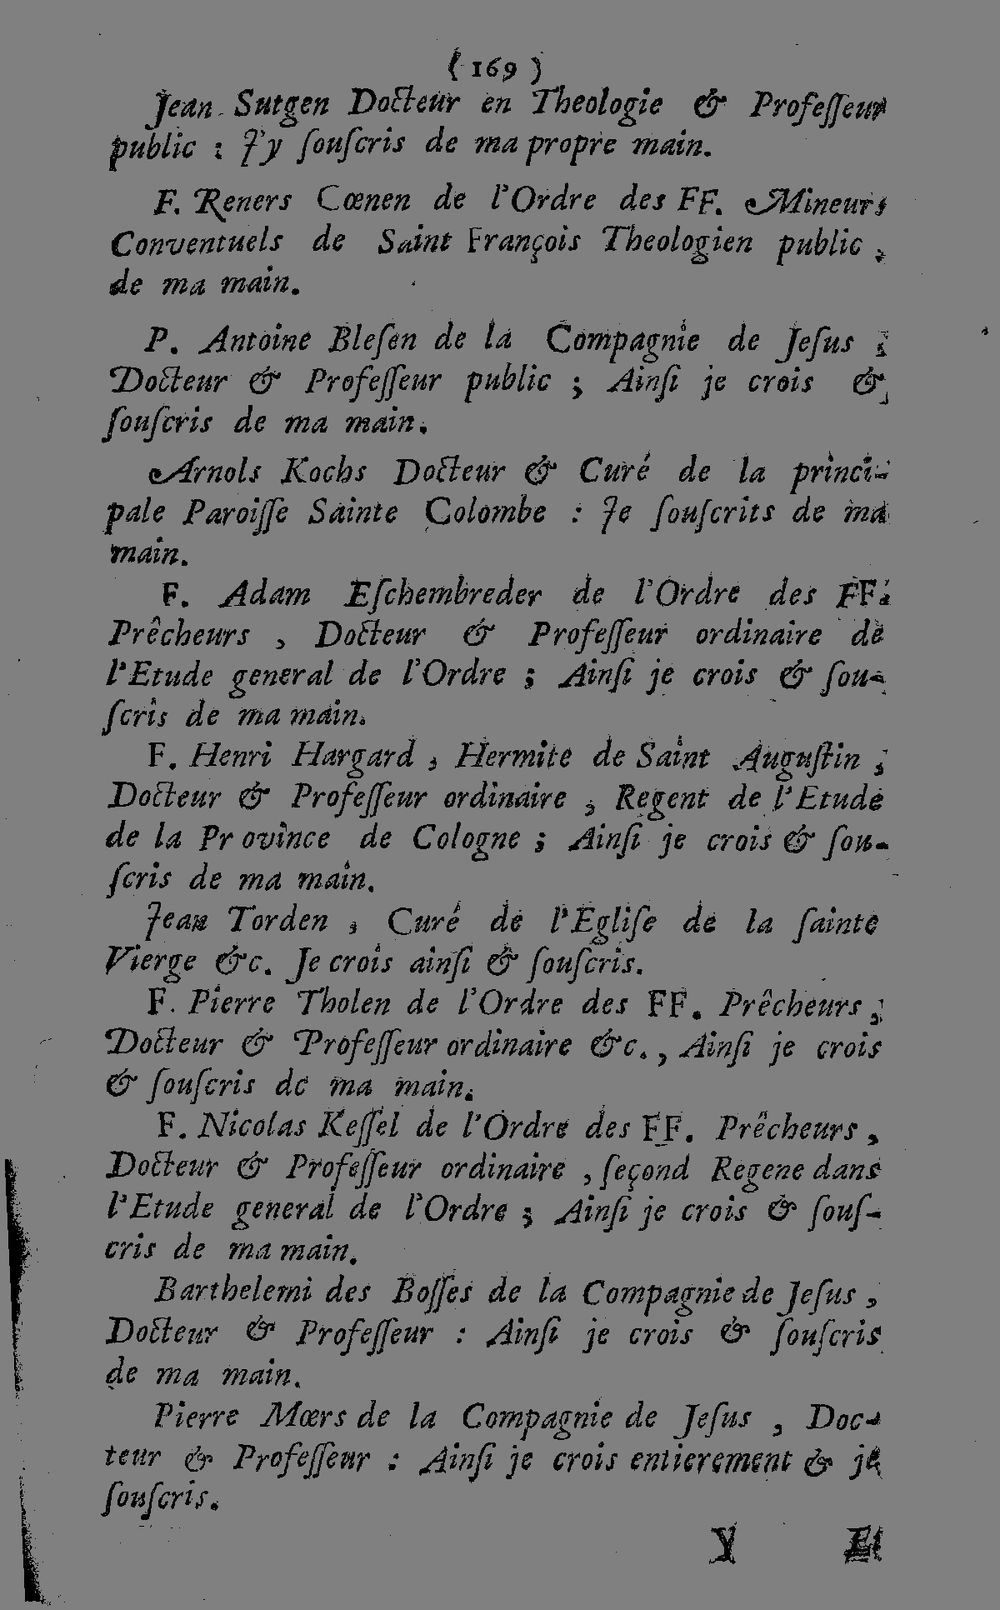 ( 169 )
Jean Sutgen Docteur en Theologie & Professeur
public : J'y souſcris de ma propre main.
F. Reners Cœnen de l'Ordre des FF. Mineurs
Conventuels de Saint François Theologien public ,
de ma main.
P. Antoine Bleſen de la Compagnie de Jeſus ;
Docteur & Profeſſeur public ; Ainſi je crois &
ſouſcris de ma main.
Arnols Kochs Docteur & Curé de la princi-
pale Paroiſſe Sainte Colombe : Je ſouſcrits de ma
main.
F. Adam Eſchembreder de l'Ordre des FF.
Prêcheurs , Docteur & Profeſſeur ordinaire de
l'Etude general de l'Ordre ; Ainſi je crois & ſou-
ſcris de ma main.
F. Henri Hargard , Hermite de Saint Auguſtin ;
Docteur & Profeſſeur ordinaire , Regent de l'Etude
de la Province de Cologne ; Ainſi je crois & ſou-
ſcris de ma main.
Jean Torden , Curé de l'Egliſe de la ſainte
Vierge &c. Je crois ainſi & ſouſcris.
F. Pierre Tholen de l'Ordre des FF. Prêcheurs ,
Docteur & Profeſſeur ordinaire &c. , Ainſi je crois
& ſouſcris de ma main.
F. Nicolas Keſſel de l'Ordre des FF. Prêcheurs ,
Docteur & Profeſſeur ordinaire , ſeçond Regene dans
l'Etude general de l'Ordre ; Ainſi je crois & ſouſ-
cris de ma main.
Barthelemi des Boſſes de la Compagnie de Jeſus ,
Docteur & Profeſſeur : Ainſi je crois & ſouſcris
de ma main.
Pierre Mœrs de la Compagnie de Jeſus , Doc-
teur & Profeſſeur : Ainſi je crois entierement & je
ſouſcris.
Y